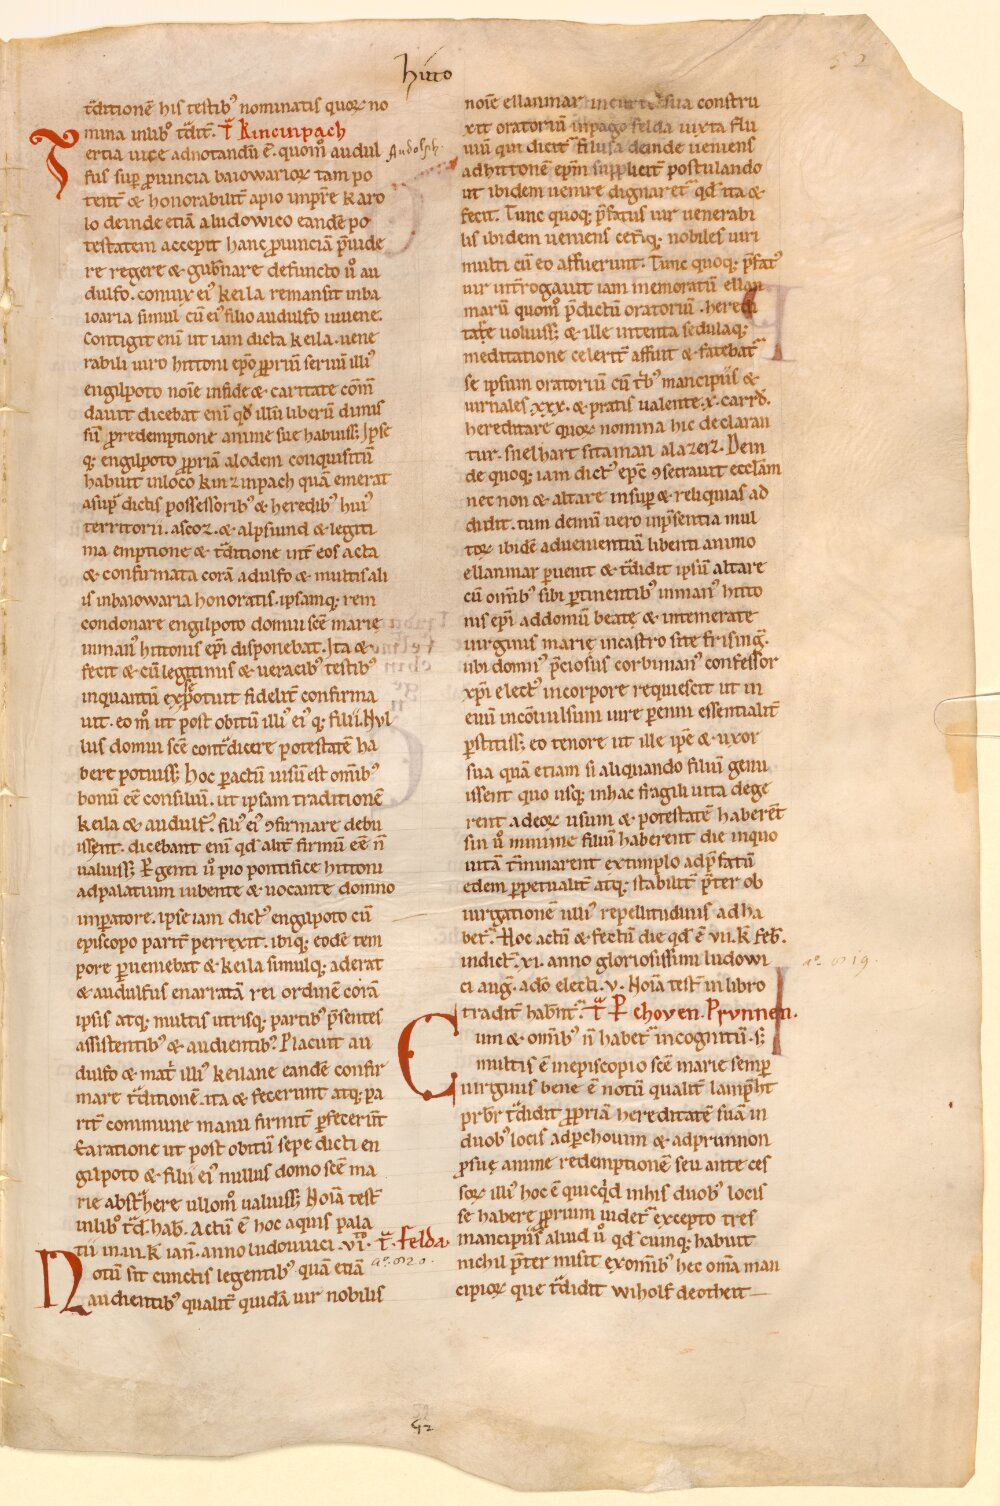 hitto
52
t̄ditionē his testib⁹ nominatis quoꝝ no
mina inlib⁹ t̄dit̄. T̄ Kincinpach
Tertia uice adnotandū ē. quom̊ audul
Audolph.
fus sup ꝓuincia baiowarioꝝ tam po
tent̄ & honorabilit̄ apio inp̄re Karo
lo deinde etiā aludowico eandē po
testatem accepit hanc ꝓuinciā p̄uide
re regere & gub̄nare defuncto ů au
dulfo. coniux ei⁹ keila remansit inba
ioaria simul cū ei⁹ filio audulfo iuuene.
Contigit enī ut iam dicta keila. uene
rabili uiro hittoni ep̄o ꝓpriū seruū illi⁹
engilpoto noīe infide & caritate com̄
dauit dicebat enī qd̄ illū liberū dimis
sū ꝓredemptione anime sue habuiss; Ipse
q; engilpoto ꝓpriā alodem conquisitū
habuit inloco kinzinpach quā emerat
asup̄ dictis possessorib⁹ & heredib⁹ hui⁹
territorii. ascoz. & alpsuind & legiti
ma emptione & t̄ditione int̄ eos acta
& confirmata corā adulfo & multis ali
is inbaiowaria honoratis. ipsamq; rem
condonare engilpoto domui scē marię
inman⁹ hittonis ep̄i disponebat. Ita &
fecit & cū legitimis & veracib⁹ testib⁹
inquantū expsͤ potuit fidelit̄ confirma
uit. eo m̊ ut post obitū illi⁹ ei⁹ q; filii. Nul
lus domui scē cont̄dicere potestatē ha
bere potuiss; hoc pactū uisū est omīb⁹
bonū eē consiliū. ut ipsam traditionē
keila & audulf⁹. fili⁹ ei⁹ ꝯfirmare debu
issent. dicebant enī qd̄ alit̄ firmū eē n̄
ualuiss; Pergenti ů pio pontifice hittoni
adpalatium iubente & uocante domno
imperatore. ipse iam dict⁹ engilpoto cū
episcopo parit̄ perrexit. ibiq; eodē tem
pore pueniebat & keila simulq; aderat
& audulfus enarratā rei ordinē corā
ipsis atq; multis utrisq; partib⁹ p̄sentes
assistentib⁹ & audientib⁹. Placuit au
dulfo & mat̄ illi⁹ keilane eandē confir
mare t̄ditionē. ita & fecerunt atq; pa
rit̄ commune manu firmit̄ pfecerūt
Ea ratione ut post obitū sepe dicti en
gilpoto & filii ei⁹ nullus domo scē ma
rie abst̄here ullom̊ ualuiss; Noīā test̄
inlib⁹ t̄d. hab̄. Actū ē hoc aquis pala
tii in iii. K ian̄. anno ludouuici. vi⁰. T̄. Felda.
aº. 820.
Notū sit cunctis legentib⁹ quā etiā
audientib⁹ qualit̄ quidā uir nobilis
noīe ellanmar incurte sua constru
xit oratoriū inpago felda iuxta flu
uiū qui dicit̄ filusa deinde ueniens
adhittonē ep̄m supplicit̄ postulando
ut ibidem uenire dignaret̄ qd̄ ita &
fecit. Tunc quoq; p̄fatus uir uenerabi
lis ibidem ueniens cet̄iq; nobiles uiri
multi cū eo affuerunt. Tunc quoq; p̄fat⁹
uir int̄rogauit iam memoratū ellan
marū quom̊ p̄dictū oratoriū. heredi
tare uoluiss; & ille intenta sedulaq;
meditatione celerit̄ affuit & fatebat̄
se ipsum oratoriū cū t̄b⁹ mancipiis &
iurnales xxx. & pratis ualente. x. carrd̄.
hereditare quoꝝ nomina hic declaran
tur. snelhart sitaman alazerz. Dein
de quoq; iam dict⁹ ep̄c ꝯsecrauit ecclāam
nec non & altare insup & reliquias ad
didit. tum demū uero inp̄sentia mul
toꝝ ibidē aduenientiū libenti animo
ellanmar puenit & t̄didit ipsū altare
cū omīb⁹ sibi ptinentib⁹ inman⁹ hitto
nis ep̄i addomū beatę & intemerate
uirginis marię incastro site frisinḡ.
ubi domn⁹ p̄ciosus corbinian⁹ confessor
xp̄i elect⁹ incorpore requiescit ut in
euū inconuulsum iure penni essentialit̄
pstitiss; eo tenore ut ille ipse & uxor
sua quā etiam si aliquando filiū genu
issent quo usq; inhac fragili uita dege
rent adeoꝝ usum & potestatē haberēt
sin ů minime filiū haberent die inquo
uitā t̄minarent extimplo adp̄fatū
edem pppetualit̄ atq; stabilit̄ p̄ter ob
iurgationē illi⁹ repellituduis adha
bet̄. Hoc actū & fectū die qd̄ ē vii. k̄ feb̄.
indict̄. xi. anno gloriosissimi ludowi
aº. 819.
ci auḡ. adō electi. v. Noīā test̄ in libro
tradit̄ hab̄nt̄. T̄ Perchoven. Prvnnen.
Cum & omīb⁹ n̄ habet̄ incognitū. s;
multis ē inepiscopio scē marie semp
uirginis bene ē notū qualit̄ lamp̄ht
prb̄r t̄didit ꝓpriā hereditatē suā in
duob⁹ locis adpchouun & adprunnon
ꝓsuę anime redemptionē seu ante ces
soꝝ illi⁹ hoc ē quicqd̄ inhis duob⁹ locis
se habere ꝓprium uidet̄ excepto tres
mancipiis aliud ů qd̄ cumq; habuit
nichil p̄ter misit exomīb⁹ hec omīa man
cipioꝝ que t̄didit wiholf deotheit—
52